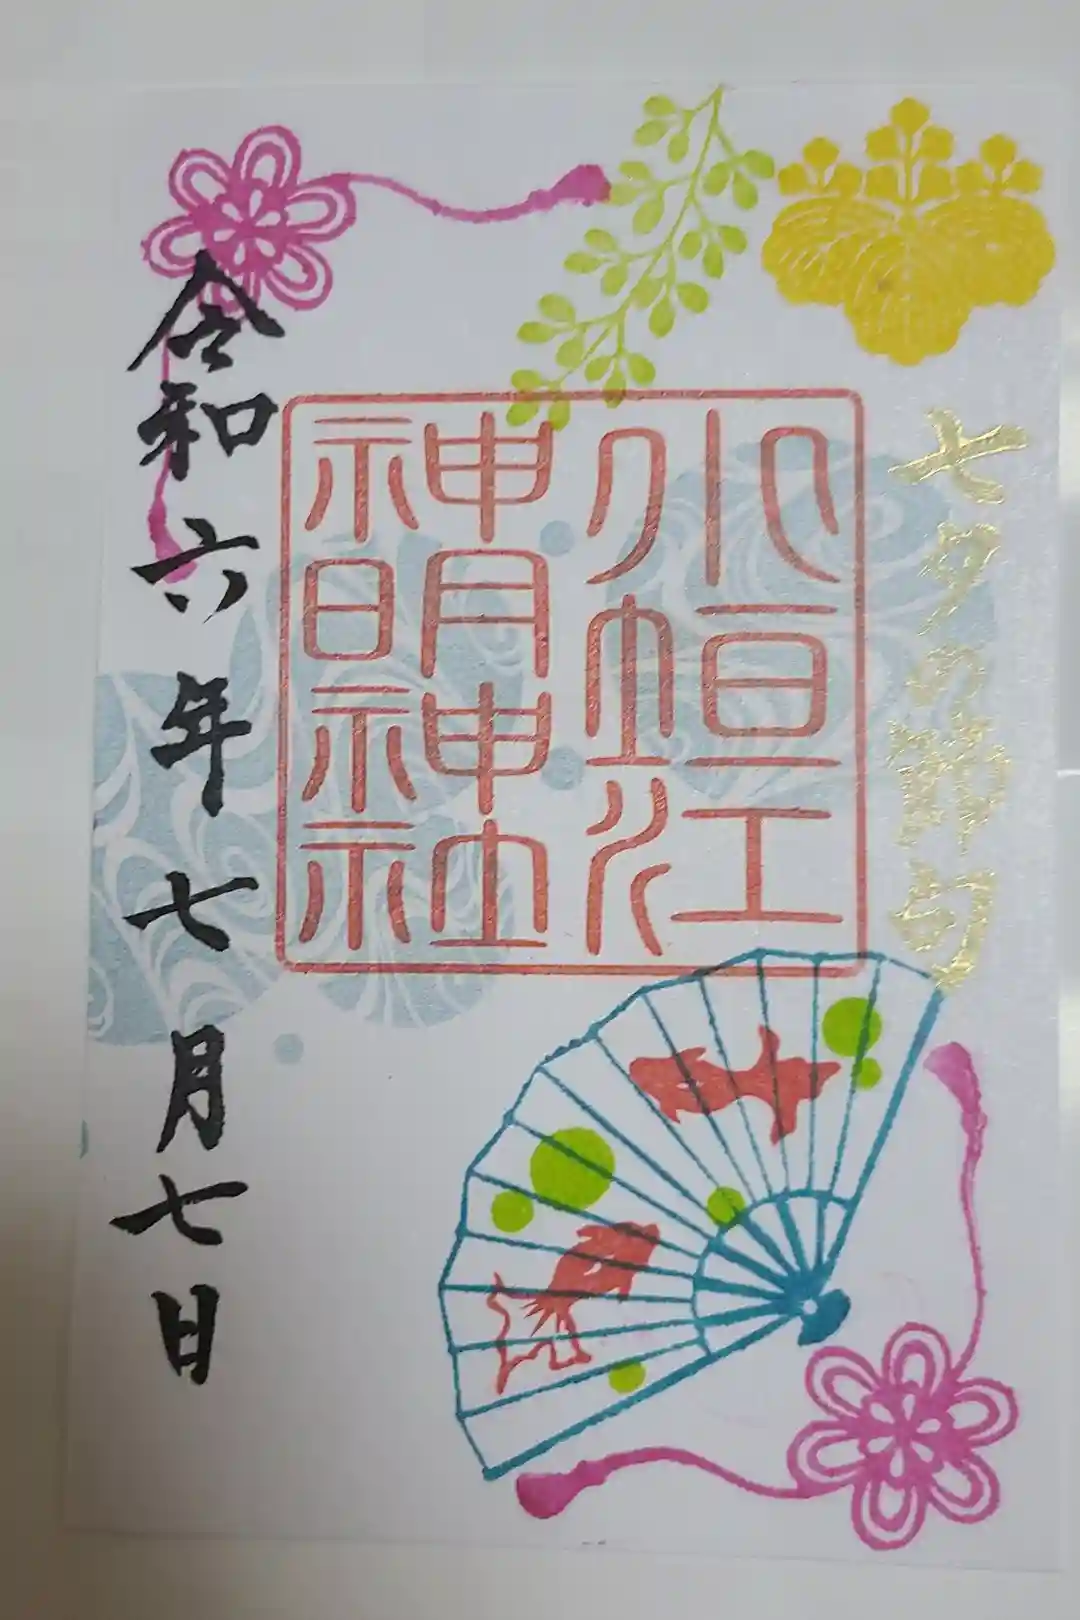 七夕の節句
小垣江
神明神社
令和六年七月七日